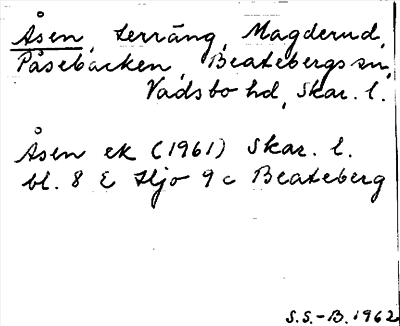 Åsen, terräng, Magderud,
Påsebäcken, Beatebergs sn,
Vadsbo hd, Skar. l.
Åsen ek (1961) Skar. l.
bl. 8 E Hjo 9 c Beateberg
S.S.-B. 1962